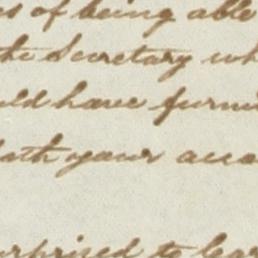 of being able
the Secretary wh
ld have furni
ath your acco
urprised to lear